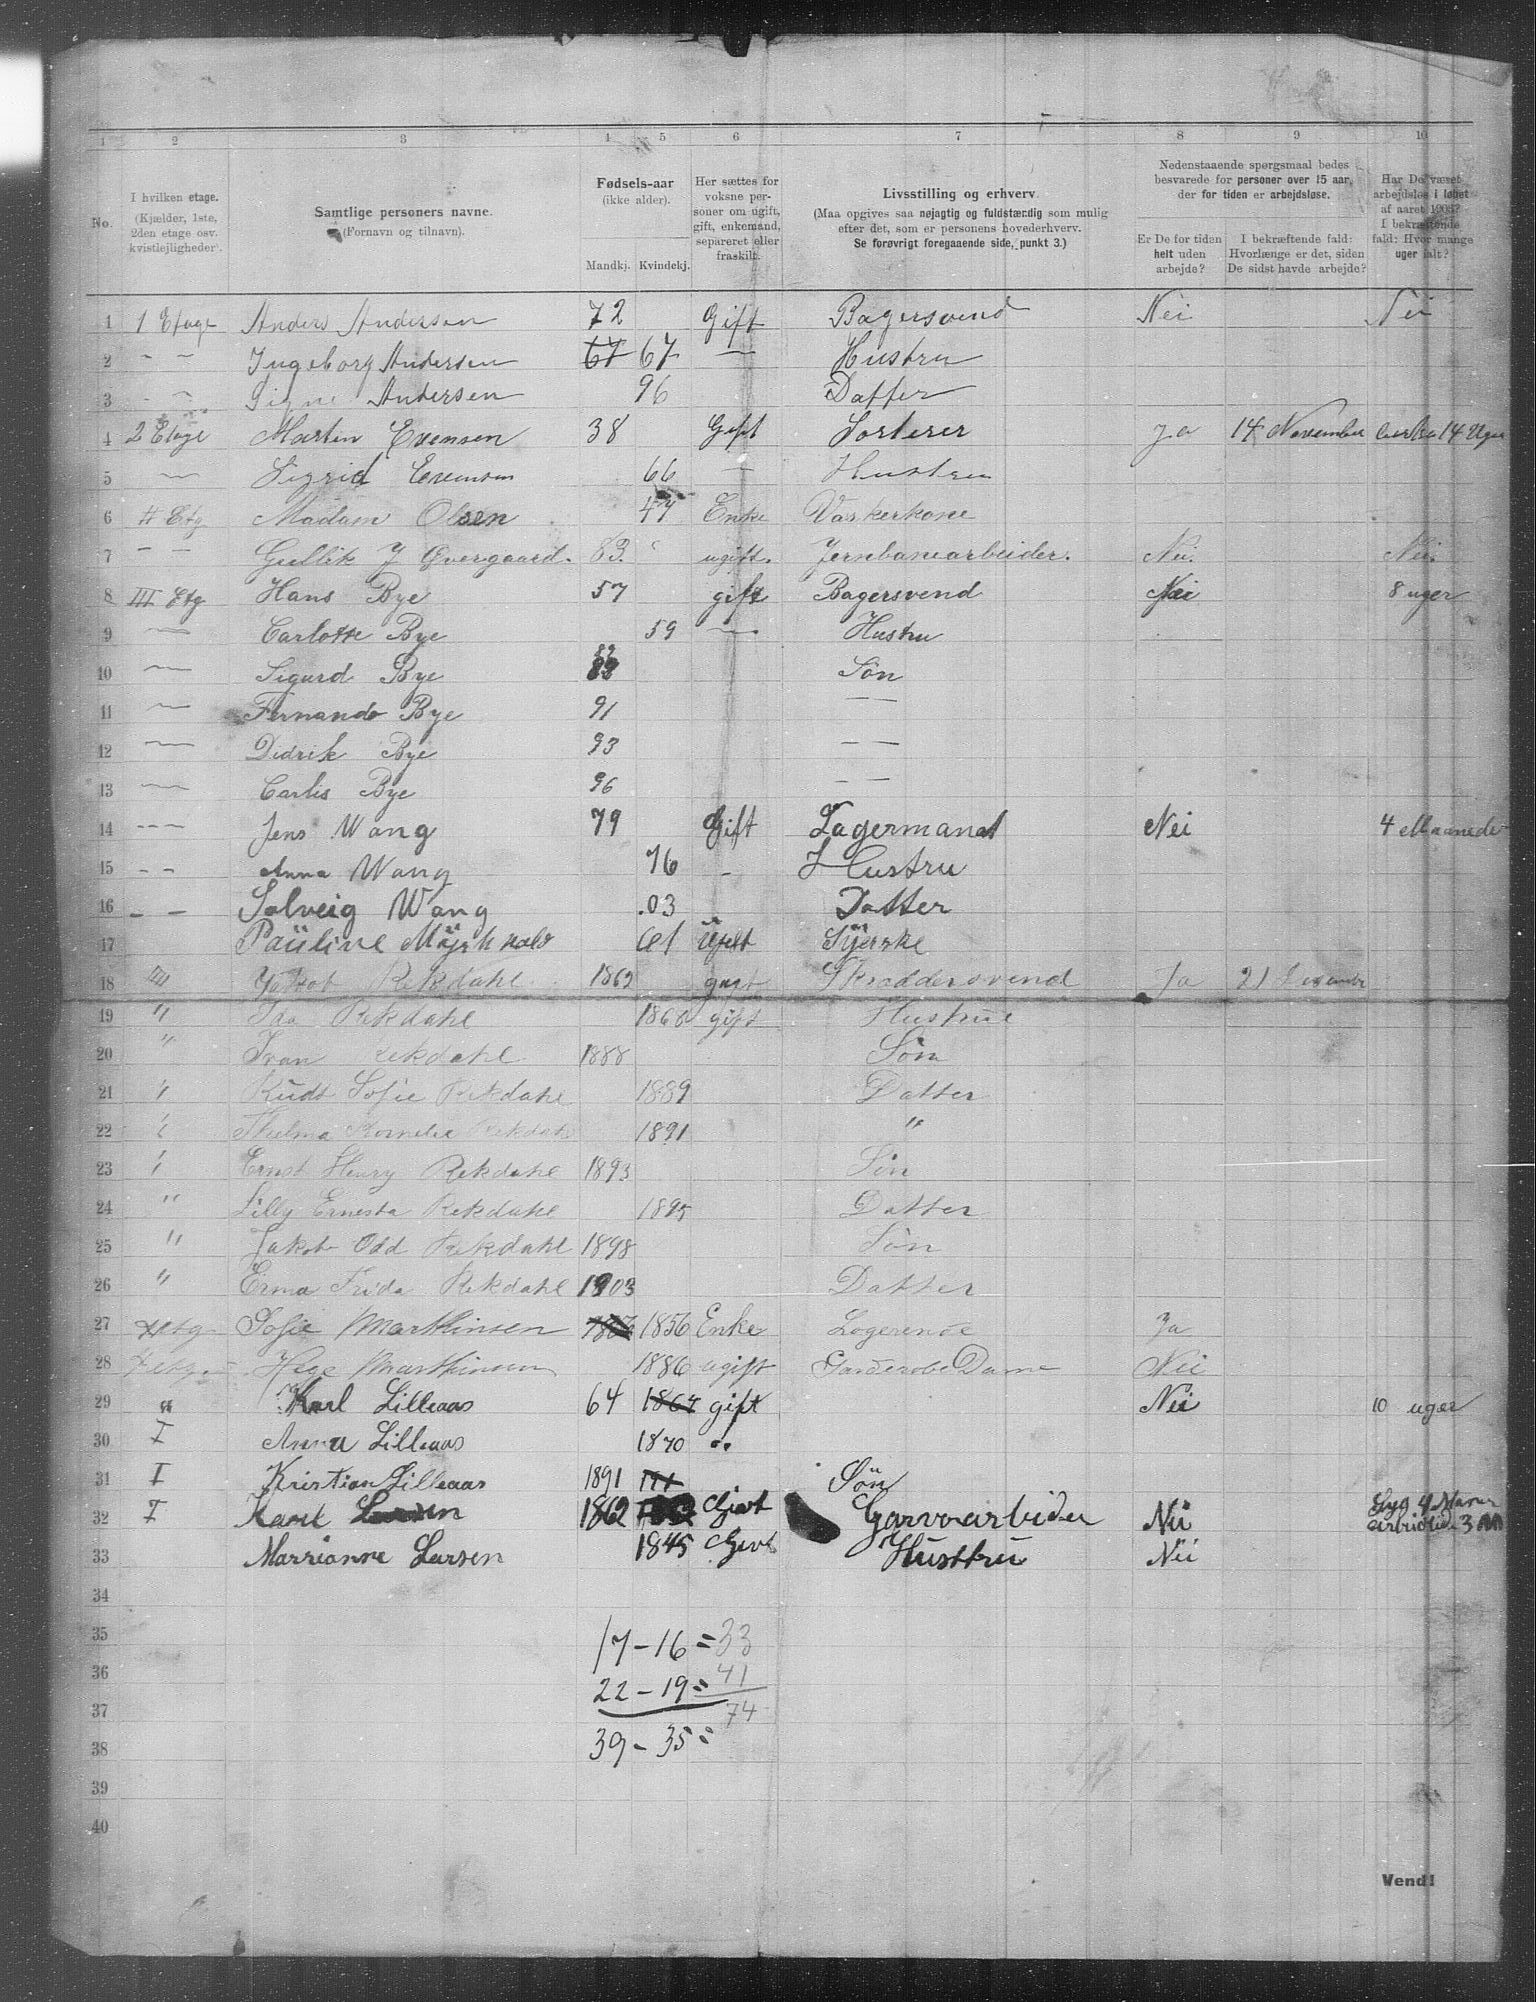 1 2 3 4 5 6 7 8 9 10
No. I hvilken etage. (Kjælder, 1ste, 2den etage osv. kvistlejligheder). Samtlige personers navne. (Fornavn og tilnavn). Fødsels-aar (ikke alder). Mandkj. Kvindekj. Her sættes for voksne personer om ugift, gift, enkemand, separeret eller fraskilt. Livsstilling og erhverv. (Maa opgives saa nøjagtig og fuldstændig som mulig efter det, som er personens hovederhverv. Se forøvrigt foregaaende side, punkt 3.) Nedenstaaende spørgsmaal bedes besvarede for personer over 15 aar, der for tiden er arbejdsløse. Er De for tiden helt uden arbejde? I bekræftende fald: Hvorlænge er det, siden De sidst havde arbejde? Har De været arbejdsløs i løbet af aaret 1903? I bekræftende fald: Hvor mange uger ialt?
1 1 Etage Anders Andersen 72 Gift Bagersvend Nei Nei
2 - - Ingeborg Andersen 67 67 — Hustru
3 - - Signe Andersen 96 Datter
4 2 Etage Martin Evensen 38 Gift Sorterer Ja 14 November cirka 14 Uger
5 — Sigrid Evensen 66 — Hustru
6 II Etg Madam Olsen 47 Enke Vaskerkone
7 - - Gullik J Overgaard. 83. ugift. Jernbanearbeider. Nei. Nei.
8 III Etg Hans Bye 57 gift Bagersvend Nei 8 uger
9 — Carlotte Bye 59 — Hustru
10 — Sigurd Bye Søn
11 — Fernando Bye 91 — —
12 — Didrik Bye 93 — —
13 — Carlis Bye 96 — —
14 - - - Jens Wang 79 Gift Lagermand Nei 4 Maaneder
15 - - Anna Wang 76 - Hustru
16 - - Solveig Wang .03 Datter
17 Pauline 61 Syerske
18 Jakob Rekdahl 1862 gift Skræddersvend Ja 21
19 " Rekdahl 1868 gift Hustrue
20 " Ivan Rekdahl 1888 Søn
21 " Sofie Rekdahl 1889 Datter
22 " Rekdahl 1891 "
23 " Ernst Henry Rekdahl 1893 Søn
24 " Lilly Ernesta Rekdahl 1895 Datter
25 " Jakob Odd Rekdahl 1898 Søn
26 " Erma Frida Rekdahl 1903 Datter
27 Sofie Marthinsen 1856 Enke Logerende Ja
28 Marthinsen 1886 ugift Garderobe Dame Nei
29 " Karl Lilleaas 64 1864 gift Nei 10 uger
30 I Anna Lilleaas 1870 "
31 I Kristian Lilleaas 1891 Søn
32 I Karel Larsen 1862 Givt Garvarbeider Nei Syg 4 arbeidsl 3 M
33 Marrianne Larsen 1845 Givt Husttru Nei
34
35 17 - 16 = 33
36 22 - 19 = 41
37 74
38 39 - 35 =
39
40
Vend!